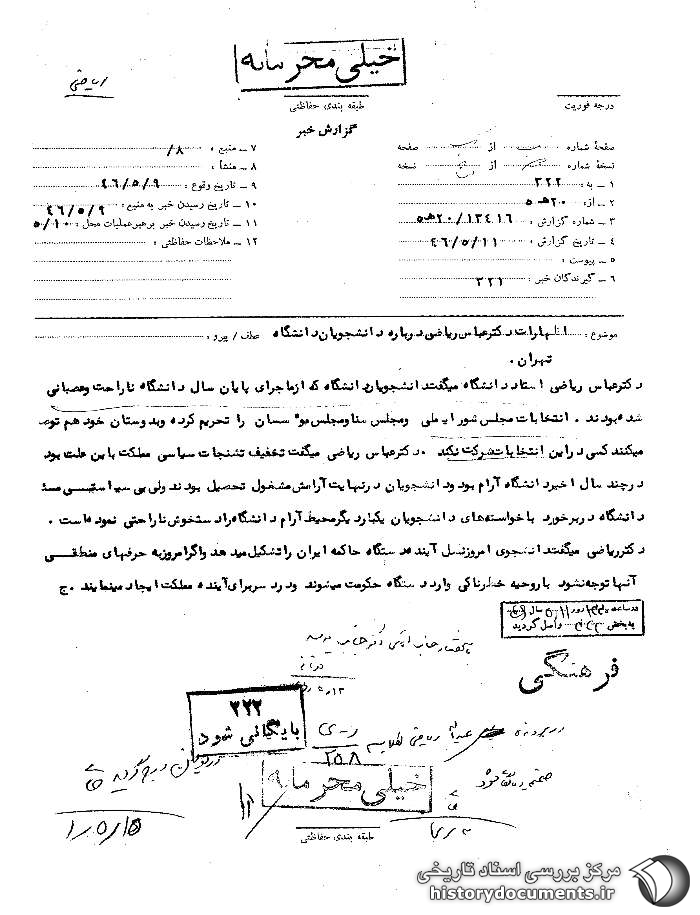 خیلی محرمانه
ریاضی
طبقه بندی حفاظتی
درجه فوریت
گزارش خبر
صفحهٔ شماره از صفحه
نسخهٔ شماره از نسخه
۱ – به : ۳۲۲
۲ – از: ۲۰ هـ ۵
۳ – شماره گزارش : ۲۰/۱۳۴۱۶ هـ ۵
۴ – تاریخ گزارش : ۴۶/۵/۱۱
۵ – پیوست :
۶ – گیرندگان خبر : ۳۲۱
۷ – منبع : ۸/
۸ – منشأ :
۹ – تاریخ وقوع : ۴۶/۵/۹
۱۰ – تاریخ رسیدن خبر به منبع : ۴۶/۵/۹
۱۱ – تاریخ رسیدن خبر برهبر عملیات محل : ۵/۱۰
۱۲ – ملاحظات حفاظتی :
موضوع : اظهارات دکتر عباس ریاضی درباره دانشجویان دانشگاه عطف / پیرو :
تهران .
دکترعباس ریاضی استاد دانشگاه میگفت دانشجویان دانشگاه که ازماجرای پایان سال دانشگاه ناراحت وعصبانی
شده بودند . انتخابات مجلس شورایملی ومجلس سنا ومجلس موسسان را تحریم کرده وبدوستان خود هم توصیه
میکنند کسی در این انتخابات شرکت نکند . دکترعباس ریاضی میگفت تخفیف تشنجات سیاسی مملکت باین علت بود
در چند سال اخیر دانشگاه آرام بود ودانشجویان در نهایت آرامش مشغول تحصیل بودند ولی بی سیاستی
دانشگاه در برخورد با خواسته های دانشجویان یکبار دیگر محیط آرام دانشگاه را دستخوش ناراحتی نموده است .
دکتر ریاضی میگفت دانشجوی امروز نسل آینده دستگاه حاکمه ایران را تشکیل میدهد واگر امروز به حرفهای منطقی
آنها توجه نشود با روحیه خطرناکی وارد دستگاه حکومت میشوند ودرد سر برای آینده مملکت ایجاد مینمایند . ج
به بخش ۳۲۲ واصل گردید
فرهنگی
۳۲۲
بایگانی شود
خیلی محرمانه
طبقه بندی حفاظتی
مرکز بررسی اسناد تاریخی
historydocuments.ir